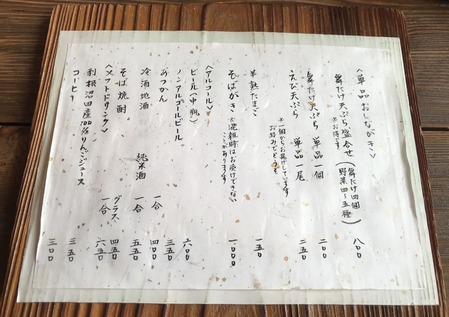 〈単品おしながき〉
舞たけ天ぷら盛合せ(舞たけ四個 野菜四〜五種) 八〇〇
※お得です
舞たけ天ぷら 単品一個 二〇〇
えび天ぷら 単品一尾 三〇〇
※一個からお揚げしています
お好みでどうぞ
半熟たまご 一五〇
そばがき ※混雑時はお受けできない
ことがあります 一〇〇〇
〈アルコール〉
ビール(中瓶) 六〇〇
ノンアルコールビール 三五〇
あつかん 一合 四〇〇
冷酒地酒 純米酒 一合 五五〇
そば焼酎 グラス 四五〇
一合 六五〇
〈ソフトドリンク〉
利根沼田産100%りんごジュース 三五〇
コーヒー 三〇〇